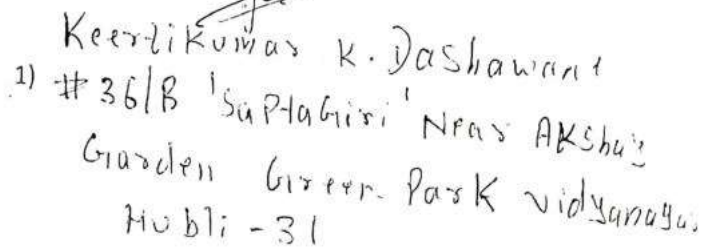 Keertikumar K. Dashawant
1) #36/B 'SaptaGiri' Near AKshay
Garden Green Park vidyanagar
Hubli - 31